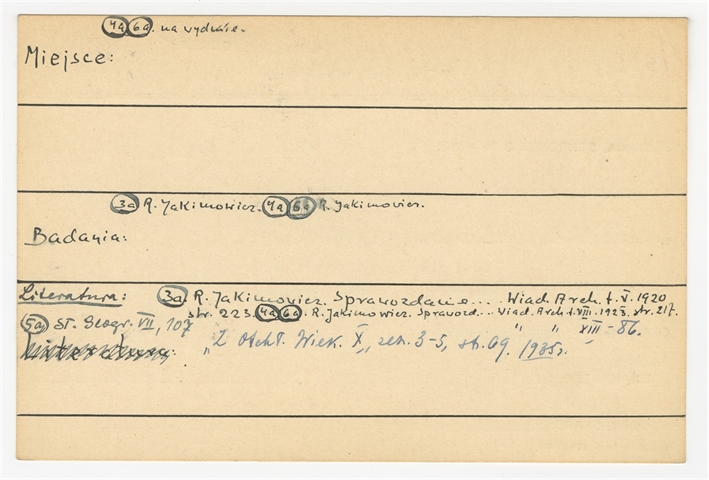 4a 6a na wydmie.
Miejsce:
3a R. Jakimowicz. 4a 6a R. Jakimowicz.
Badania:
Literatura: 3a. R. Jakimowicz. Sprawozdanie... Wiad. Arch. t. V. 1920
str. 223. 4a 6a. R. Jakimowicz. Sprawozd... Wiad. Arch. t. VIII. 1923. str. 217.
5a St. Geogr. VII, 107 " " XIII - 86.
"Z otchł. Wiek. X", zesz. 3-5, str. 69. 1935 r.